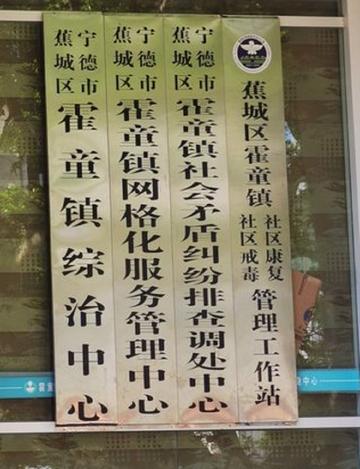 宁德市
蕉城区
霍童镇综治中心
宁德市
蕉城区
霍童镇网格化服务管理中心
宁德市
蕉城区
霍童镇社会矛盾纠纷排查调处中心
蕉城区霍童镇
社区戒毒
社区康复
管理工作站
中心